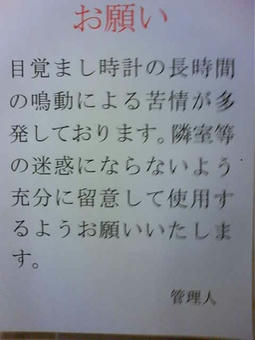 お願い
目覚まし時計の長時間
の鳴動による苦情が多
発しております。隣室等
の迷惑にならないよう
充分に留意して使用す
るようお願いいたしま
す。
管理人